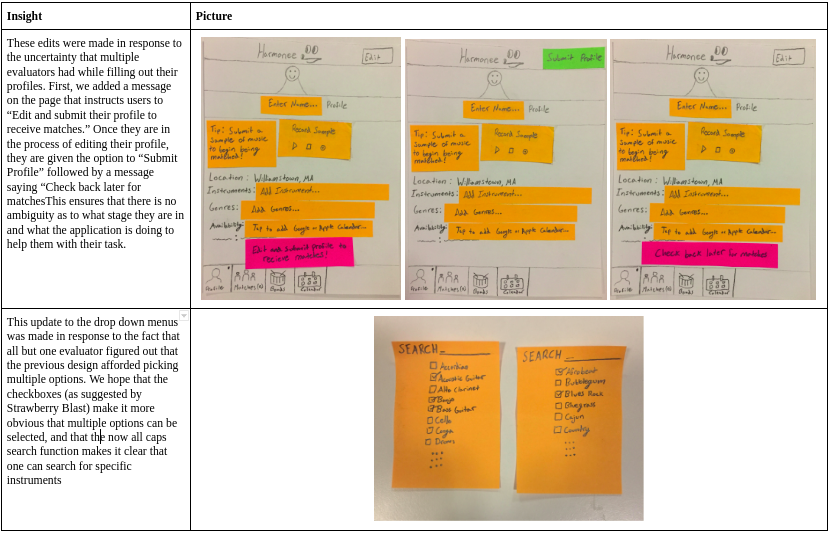 Insight
Picture
These edits were made in response to
the uncertainty that multiple
evaluators had while filling out their
profiles. First, we added a message
on the page that instructs users to
“Edit and submit their profile to
receive matches.” Once they are in
the process of editing their profile,
they are given the option to “Submit
Profile” followed by a message
saying “Check back later for
matchesThis ensures that there is no
ambiguity as to what stage they are in
and what the application is doing to
help them with their task.
Harmonee
Edit
Enter Name...
Profile
Tip: Submit a
sample of music
to begin being
matched!
Record Sample
Location: Williamstown, MA
Instruments: Add Instrument...
Genres: Add Genres...
Availability: Tap to add Google or Apple Calendar...
Edit and submit profile to
recieve matches!
Profile
Matches(0)
Bands
Calendar
Harmonee
Submit Profile
Enter Name...
Profile
Tip: Submit a
sample of music
to begin being
matched!
Record Sample
Location: Williamstown, MA
Instruments: Add Instrument...
Genres: Add Genres...
Availability: Tap to add Google or Apple Calendar...
Profile
Matches(0)
Bands
Calendar
Harmonee
Edit
Enter Name...
Profile
Tip: Submit a
sample of music
to begin being
matched!
Record Sample
Location: Williamstown, MA
Instruments: Add Instrument...
Genres: Add Genres...
Availability: Tap to add Google or Apple Calendar...
Check back later for matches
Profile
Matches(0)
Bands
Calendar
This update to the drop down menus
was made in response to the fact that
all but one evaluator figured out that
the previous design afforded picking
multiple options. We hope that the
checkboxes (as suggested by
Strawberry Blast) make it more
obvious that multiple options can be
selected, and that the now all caps
search function makes it clear that
one can search for specific
instruments
SEARCH
Accordion
Acoustic Guitar
Alto Clarinet
Banjo
Bass Guitar
Cello
Conga
Drums
...
SEARCH
Afrobeat
Bubblegum
Blues Rock
Bluegrass
Cajun
Country
...